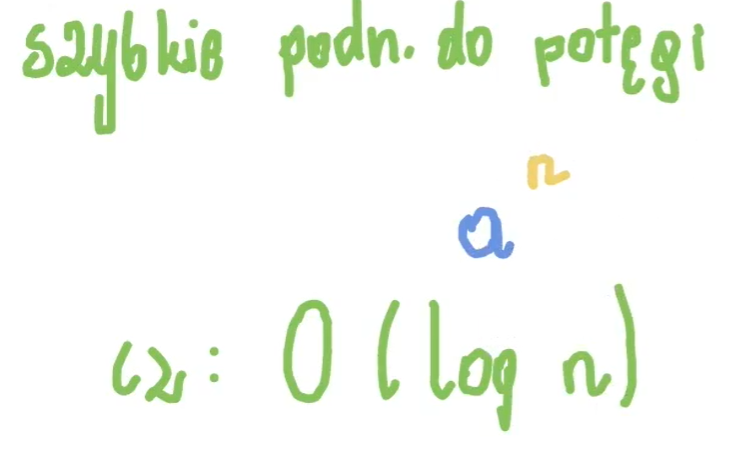 szybkie podn. do potęgi
aⁿ
cz: O(log n)